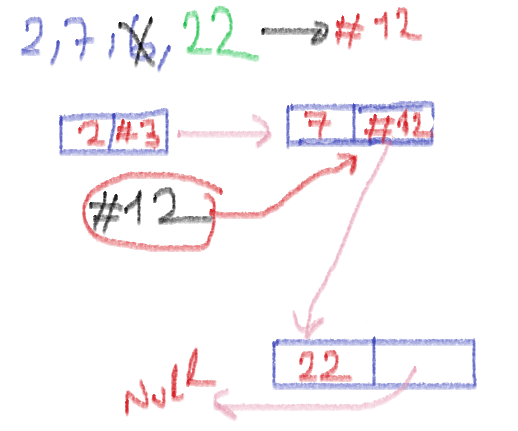 2, 7, , 22 → #12
2 #3
7 #12
#12
22
Null